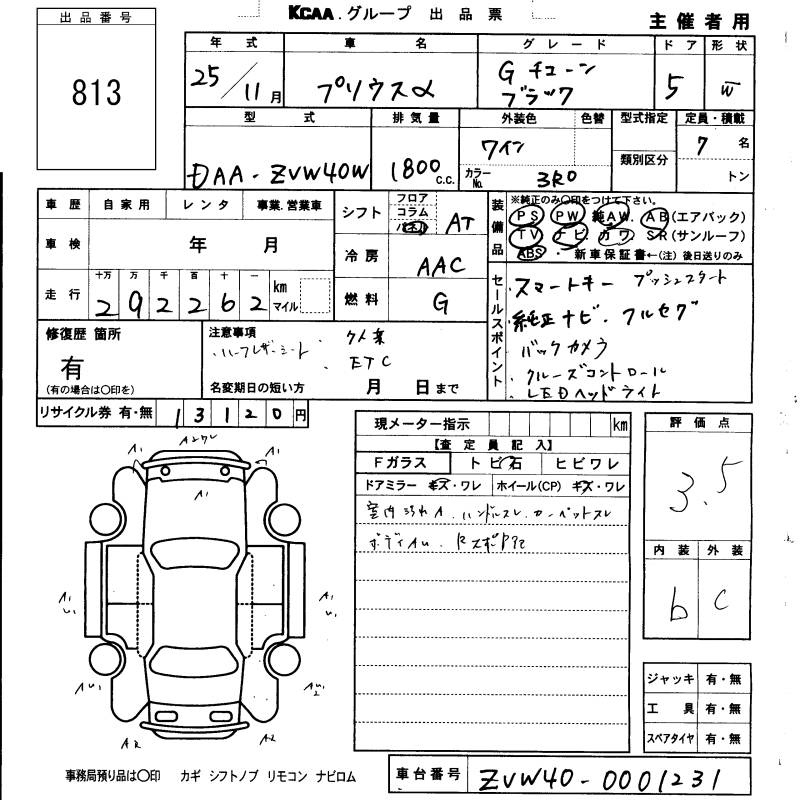 KCAA.グループ 出品票
主催者用
出品番号
813
年式 車名 グレード ドア 形状
25/11月 プリウスα Gチューンブラック 5 W
型式 排気量 外装色 色替 型式指定 定員・積載
DAA-ZVW40W 1800c.c. ワイン 7名
カラーNo. 3R0 類別区分 トン
車歴 自家用 レンタ 事業.営業車
シフト フロア コラム AT
装備品 ※純正のみ○印をつけて下さい。
PS PW 純AW. AB(エアバック)
車検 年 月
TV ナビ カワ SR(サンルーフ)
冷房 AAC
ABS ・新車保証書←(注)後日送りのみ
走行 十万 万 千 百 十 一
292262 km マイル
燃料 G
セールスポイント
・スマートキー プッシュスタート
・純正ナビ・フルセグ
・バックカメラ
・クルーズコントロール
・LEDヘッドライト
修復歴 箇所
有
(有の場合は○印を)
注意事項
・ハーフレザーシート
ETC
名変期日の短い方 月 日まで
リサイクル券 有・無 13120円
現メーター指示 km
【査定員記入】
Fガラス トビ石 ヒビワレ
ドアミラー キズ・ワレ ホイール(CP) キズ・ワレ
室内汚れA.ハンドルスレ.カーペットスレ
評価点
3.5
内装 外装
b C
A1 A1
A1
A1 U1 A1 U1
AU1 AU2
A2 A2
ジャッキ 有・無
工具 有・無
スペアタイヤ 有・無
事務局預り品は○印 カギ シフトノブ リモコン ナビロム
車台番号 ZVW40-0001231